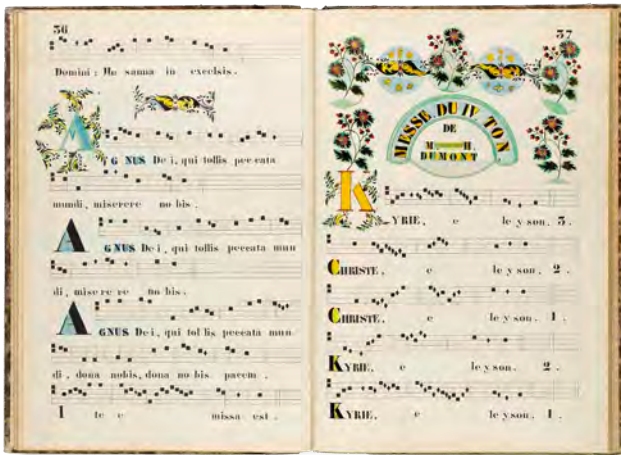 36
Domini: Ho sanna in excelsis.
AGNUS De i, qui tollis pec cata
mundi, miserere no bis.
AGNUS De i, qui tollis peccata mun
di, mise re re no bis.
AGNUS De i, qui tol lis peccata mun
di, dona nobis, dona no bis pacem.
I te e missa est.
37
MESSE DU IV TON.
DE
H.
DUMONT
KYRIE, e le y son. 3.
CHRISTE, e le y son. 2.
CHRISTE, e le y son. 1.
KYRIE, e le y son. 2.
KYRIE, e le y son. 1.